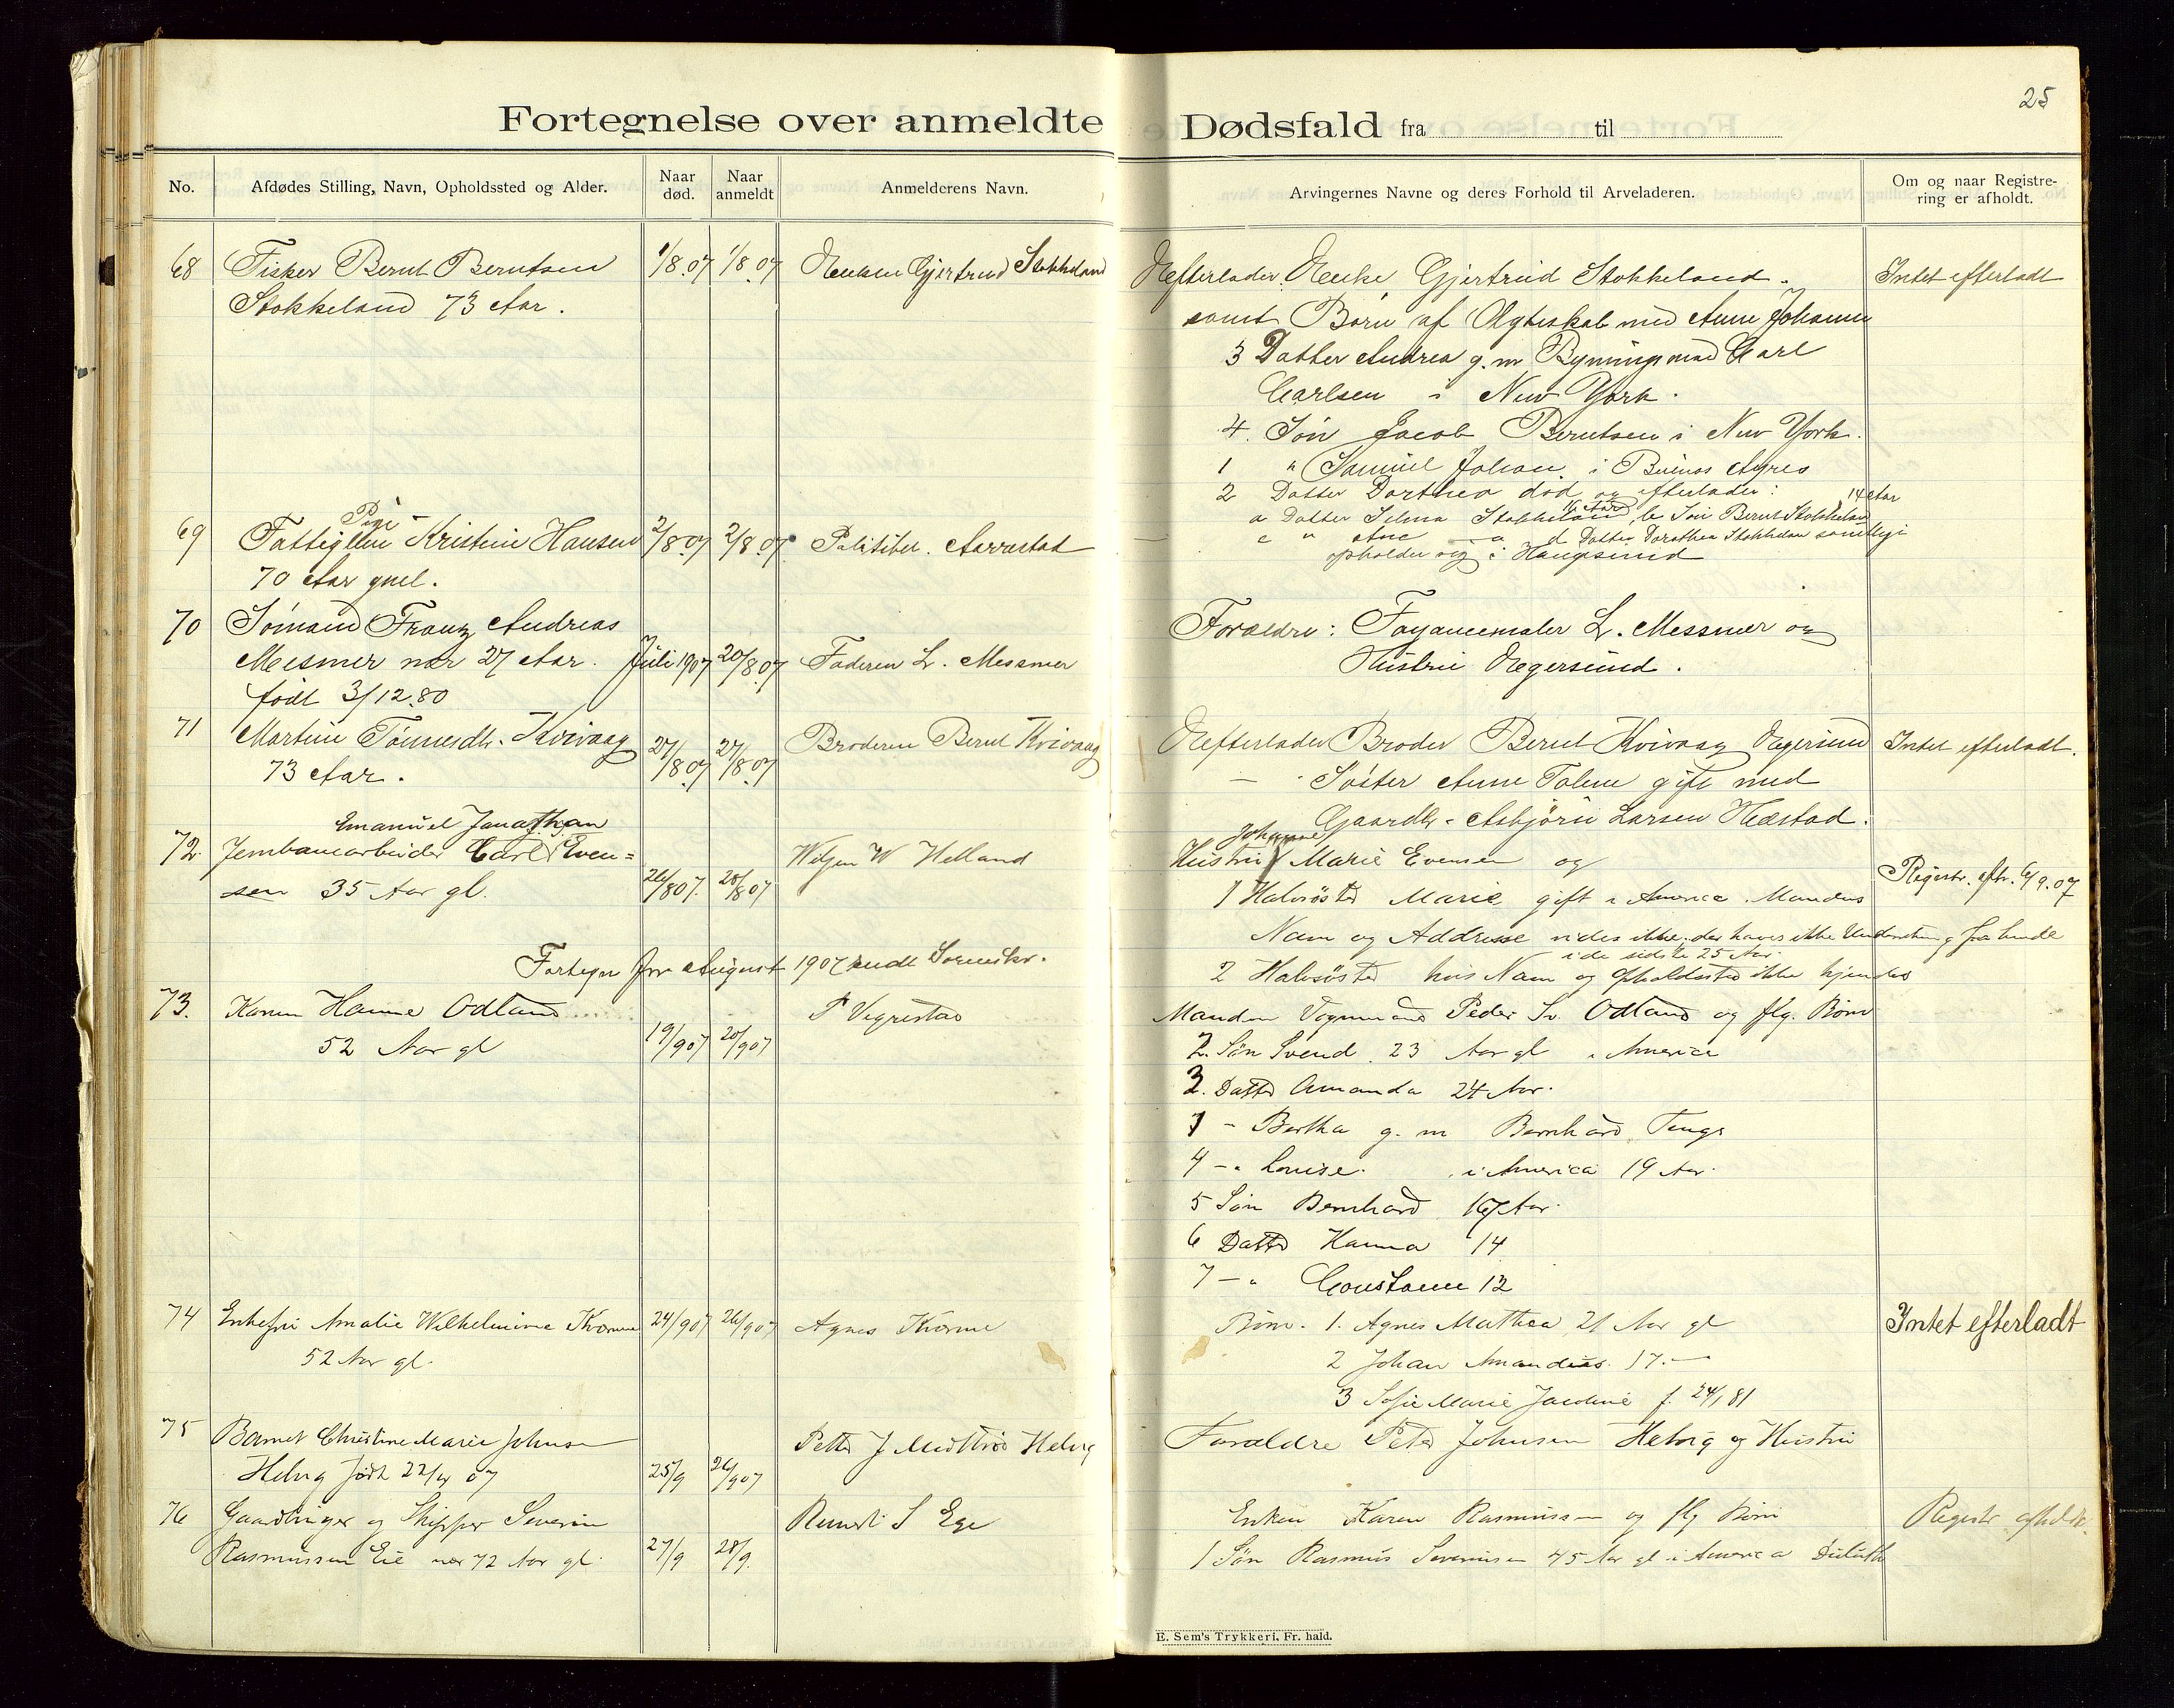 25
Fortegnelse over anmeldte Dødsfald fra til
No.
Afdødes Stilling, Navn, Opholdssted og Alder.
Naar død.
Naar anmeldt
Anmelderens Navn.
Arvingernes Navne og deres Forhold til Arveladeren.
Om og naar Registre-
ring er afholdt.
68 Fisker Bernt Berntsen 1/8.07 1/8.07 Enken Gjertrud Stokkeland
Stokkeland 73 Aar.
Efterlader Enke Gjertrud Stokkeland. Intet efterladt
samt Børn af Ægteskab med Anne Johanne
3 Datter Andrea g. m Bygningsmand Carl
Carlsen i New York.
4. Søn Jacob Berntsen i New York.
1 " Samuel Johan i Buenos Ayres
2 Datter Dorthea død og efterlader: 14 Aar
a Datter Selma Stokkeland 16 Aar, b Søn Bernt Stokkeland
c " d Datter Dorothea Stokkeland samtlige
opholder sig i Haugesund
69 Fattiglem Pige Kristine Hansen 2/8.07 2/8.07 Politibet. Aarrestad
70 Aar gml.
70 Sømand Franz Andreas
Messmer nær 27 Aar. Juli 1907 20/8.07 Faderen L. Messmer
født 3/12.80
Forældre: Fayancemaler L. Messmer og
Hustru Egersund.
71 Martine Tønnesdtr. Kvivaag 27/8.07 27/8.07 Broderen Bernt Kvivaag
73 Aar.
Efterlader Broder Bernt Kvivaag Egersund Intet efterladt.
— Søster Anne Tolene gift med
Gaardbr. Asbjørn Larsen Hæstad.
Emanuel Jonathan
72. Jernbanearbeider Carl Even=
sen 35 Aar gl. 26/807. 28/807 W Helland
Johanne
Hustru Marie Evensen og
1 Halvsøster Marie gift i America. Mandens Registr. afh. 6/9.07
Navn og Addresse vides ikke, der haves ikke Underretning fra hende
i de sidste 25 Aar.
2 Halvsøster hvis Navn og Opholdssted ikke kjendes
Fortegn for August 1907 sendt Sorenskr.
73. Karen Hanne Odland 19/907 20/907 P Vegrestad
52 Aar gl
Manden Vognmand Peder Sv. Odland og flg. Børn
2. Søn Svend 23 Aar gl i America
3. Datter Amanda 24 Aar.
1 - Bertha g. m Bernhard Tengs
4 - " Louise. i America 19 Aar.
5 Søn Bernhard 16 Aar.
6 Datter Hanna 14
7 - " Constance 12
74 Enkefru Amalie Wilhelmine Kværme 24/907 26/907 Agnes Kværme
52 Aar gl.
Børn. 1. Agnes Mathea 21 Aar gl Intet efterladt
2 Johan Amandus 17. —
3 Sofie Marie Jacobine f. 24/1 81
75 Barnet Christine Marie Johnsen
Helvig født 22/4 07 25/9 26/907 Petter J Midttrøe Helvig
Forældre Peter Johnsen Helvig og Hustru
76 Gaardbruger og Skipper Severin
Rasmussen Eie nær 72 Aar gl. 27/9 28/9. S Ege
Enken Karen Rasmussen og flg Børn Registr. afholdt.
1 Søn Rasmus Severinsen 45 Aar gl i America Duluth
E. Sem's Trykkeri, Fr. hald.